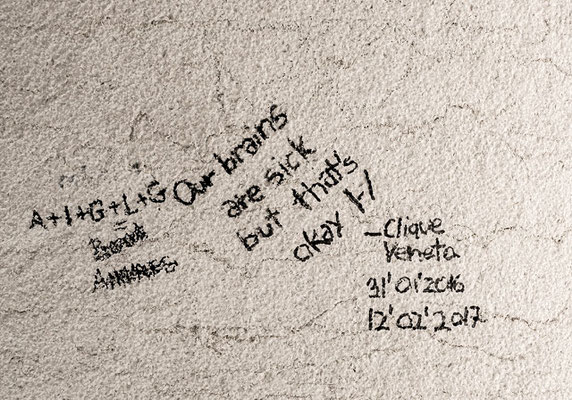 A+I+G+L+G
Our brains
are sick
but that's
okay |-/
-Clique
Veneta
31'01'2016
12'02'2017